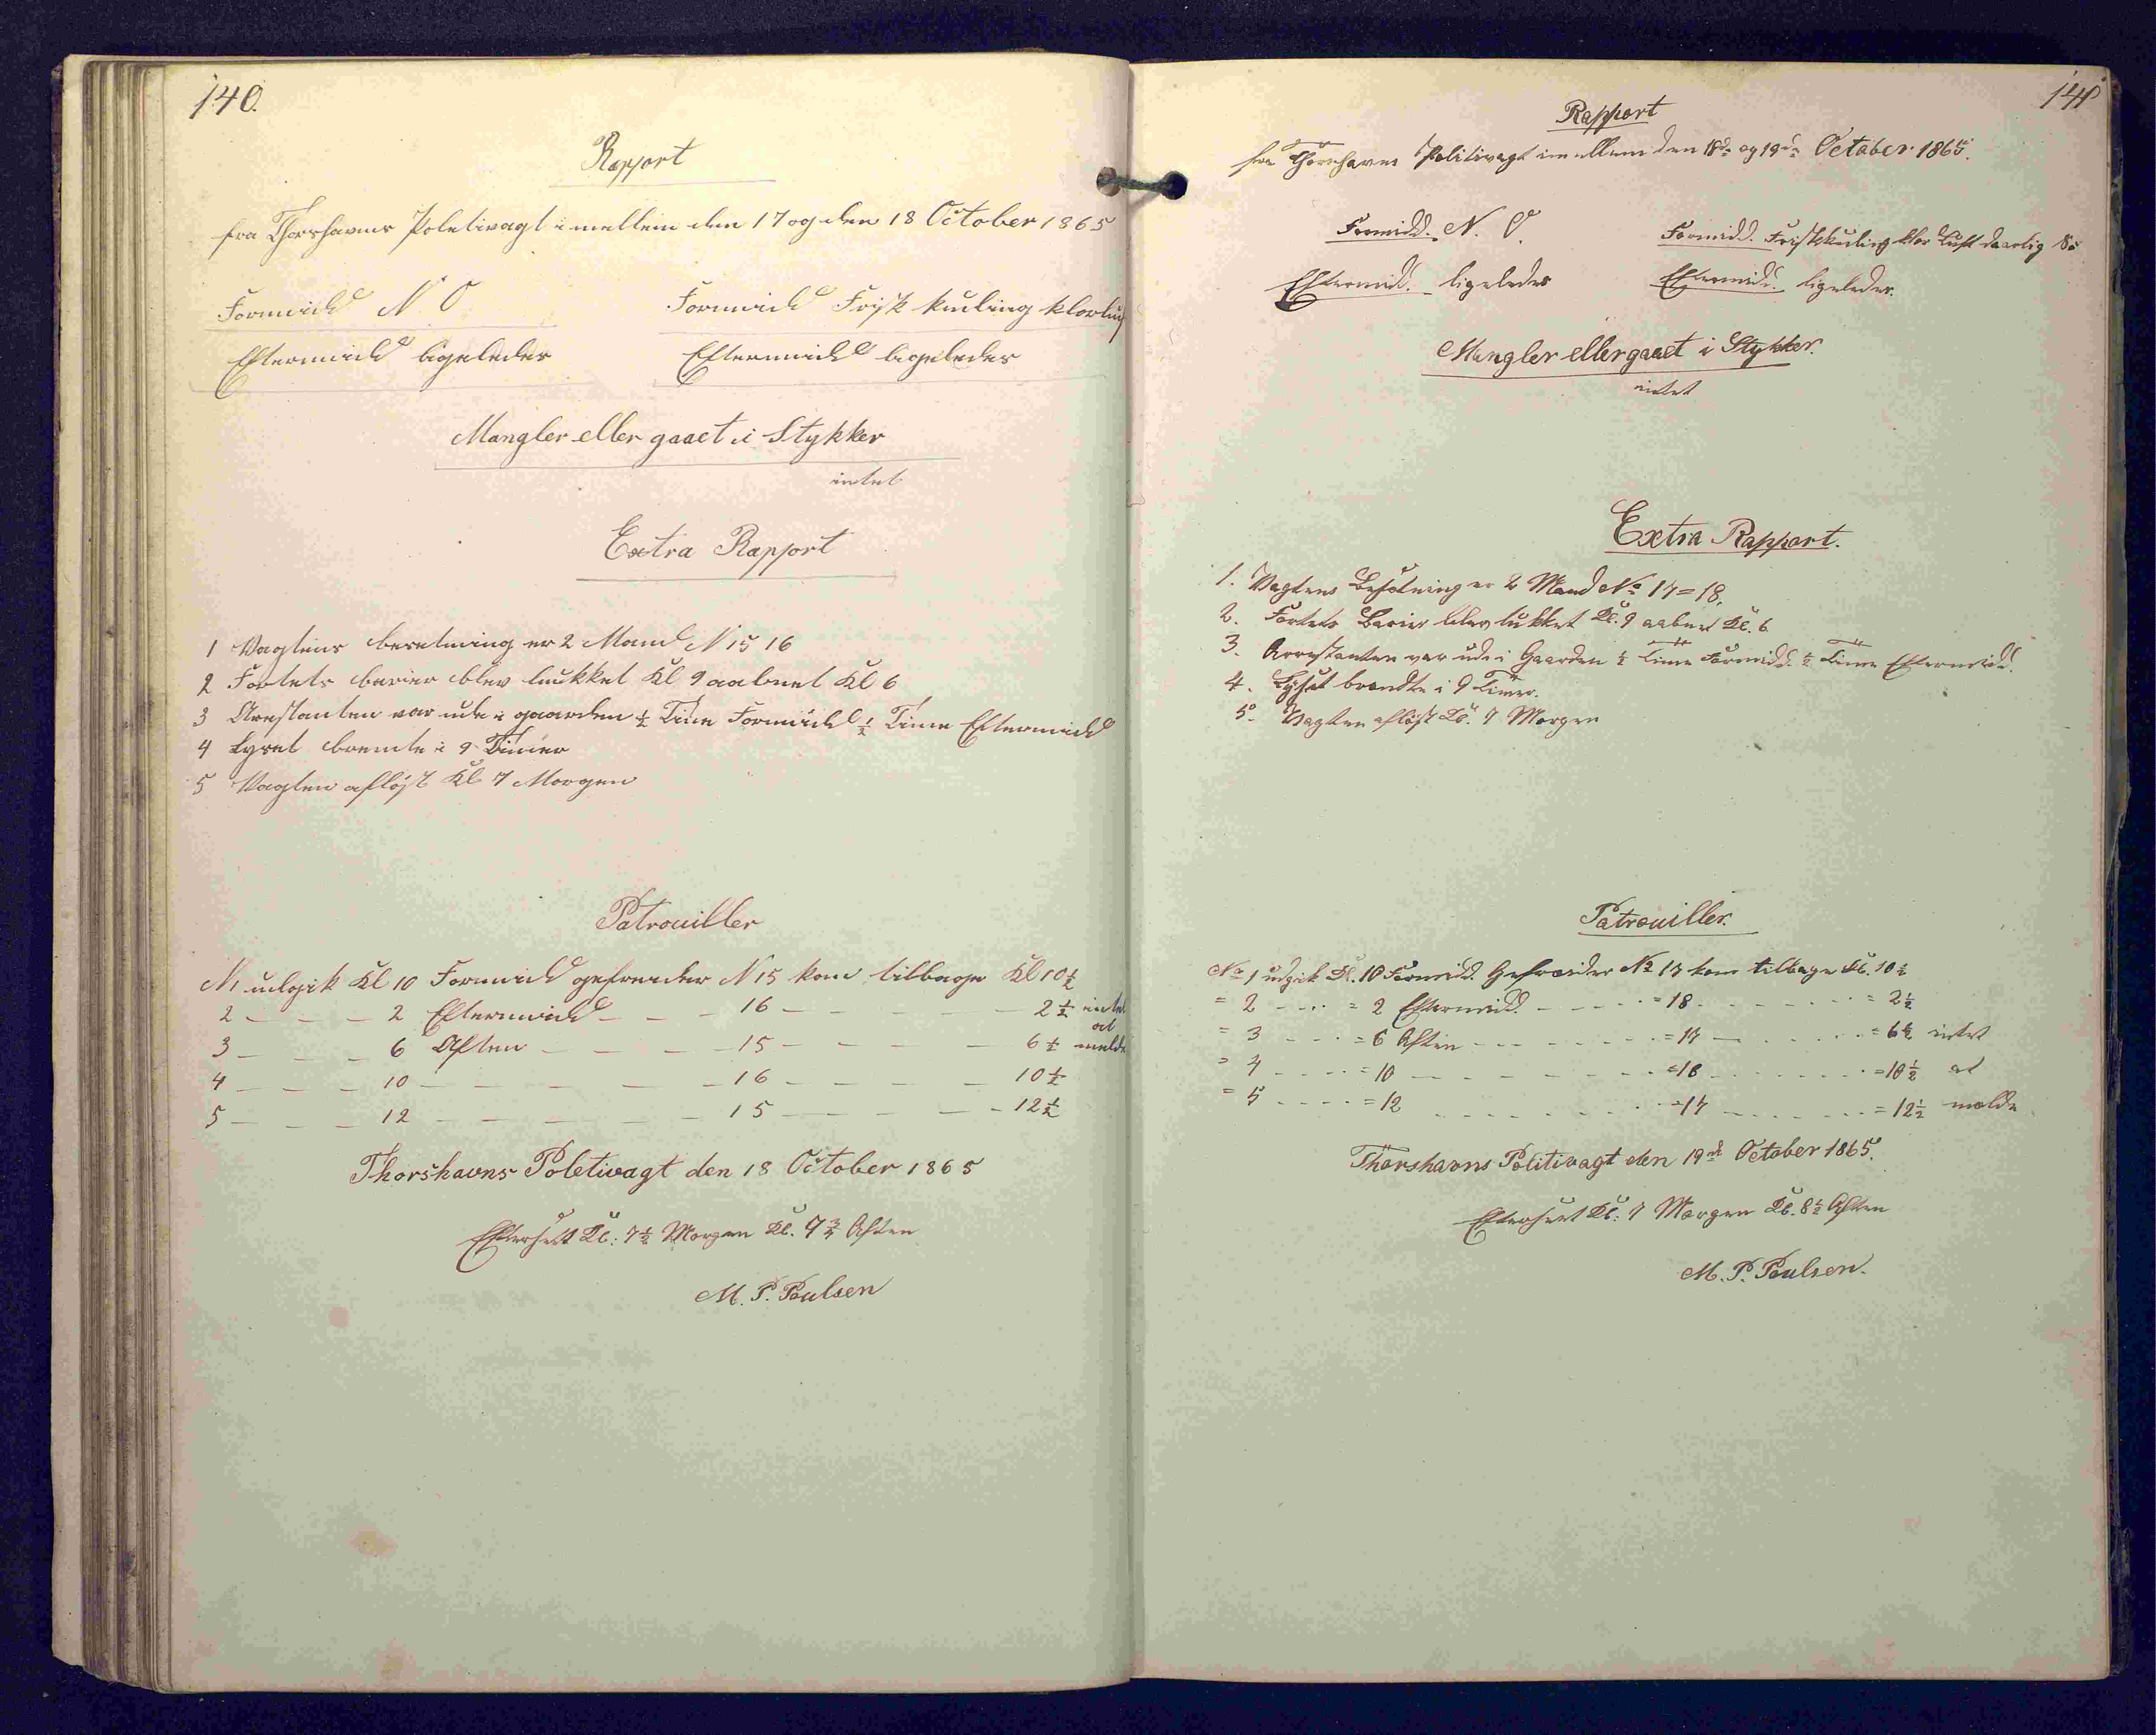 140.
Rapport
fra Thorshavns Poletivagt imellem den 17 og den 18 October 1865
Formidd N. O
Formidd Frisk kuling klorluf
Eftermidd ligeledes
Eftermidd ligeledes
Mangler eller gaaet i Stykker
intet
Extra Rapport
1 Vagtens besetning er 2 Mand N 15 16
2 Fortets barier blev lukket Kl 9 aabnet Kl 6
3 Arestanten var ude i gaarden ½ Time Formidd ½ Time Eftermidd
4 Lyset brente i 9 Timer
5 Vagten afløst Kl 7 Morgen
Patrouiller
N 1 udgik Kl 10 Formidd gefreider N 15 kom tilbage Kl 10½
2 – – – 2 Eftermidd – – – 16 – – – – – 2½ intet
at
3 – – – 6 Aften – – – 15 – – – – – 6½ melde
4 – – – 10 – – – – – 16 – – – – – 10½
5 – – – 12 – – – – – 15 – – – – – 12½
Thorshavns Poletivagt den 18 October 1865
Efterseet Kl: 7½ Morgen Kl. 9¾ Aften
M. P. Poulsen
141
Rapport
fra Thorshavns Politivagt imellem den 18de og 19de October 1865.
Formidd. N. O.
Formidd. Friskkuling klar Luft daarlig Sø
Eftermidd. ligeledes
Eftermidd. ligeledes.
Mangler eller gaaet i Stykker.
intet
Extra Rapport.
1. Vagtens Besætning er 2 Mand No 17=18.
2. Fortets Barier blev lukket Kl. 9 aabnet Kl. 6
3. Arrestanten var ude i Gaarden ½ Time Formidd. ½ Time Eftermidd.
4. Lyset brendte i 9 Timer.
5. Vagten afløst Kl. 7 Morgen
Patrouiller.
No 1 udgik Kl. 10 Formidd. Gefreider No 17 kom tilbage Kl. 10½
= 2 - - - = 2 Eftermidd. - - - - = 18 - - - - - = 2½
= 3 - - - = 6 Aften - - - - - = 17 - - - - - = 6½ intet
= 4 - - - = 10 - - - - - - = 18 - - - - - = 10½ at
= 5 - - - = 12 - - - - - - = 17 - - - - - = 12½ melde
Thorshavns Politivagt den 19de October 1865.
Efterseet Kl: 7 Morgen Kl. 8½ Aften
M. P. Poulsen.